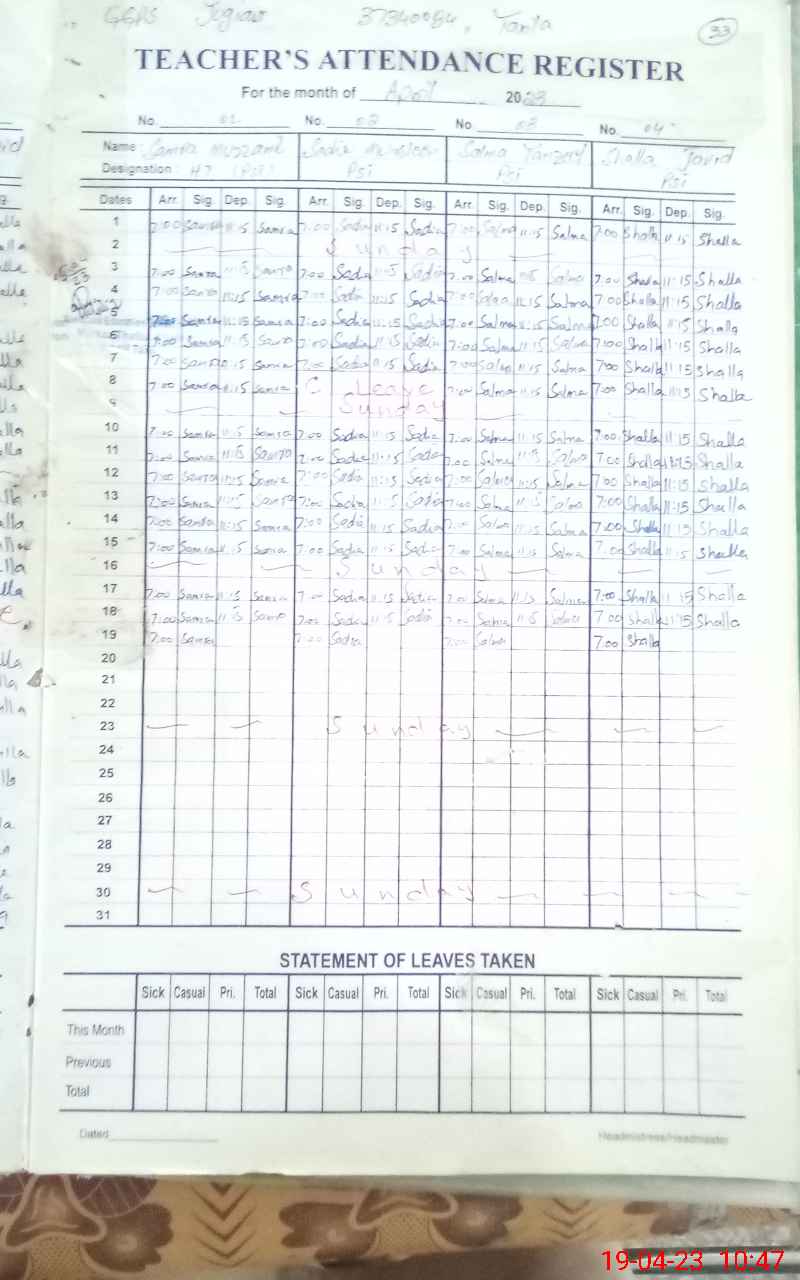 GGPS 37340084,
33
TEACHER'S ATTENDANCE REGISTER
For the month of April 2023
No. 01 No. 02 No. 03 No. 04
Name: Samra Sadia Salma Shalla Javid
Designation: PST PST PST
Dates Arr. Sig. Dep. Sig. Arr. Sig. Dep. Sig. Arr. Sig. Dep. Sig. Arr. Sig. Dep. Sig.
1 7:00 Samra 11:15 Samra 7:00 Sadia 11:15 Sadia 7:00 Salma 11:15 Salma 7:00 Shalla 11:15 Shalla
2 Sunday
3 7:00 Samra 11:15 Samra 7:00 Sadia 11:15 Sadia 7:00 Salma 11:15 Salma 7:00 Shalla 11:15 Shalla
4 7:00 Samra 11:15 Samra 7:00 Sadia 11:15 Sadia 7:00 Salma 11:15 Salma 7:00 Shalla 11:15 Shalla
5 7:00 Samra 11:15 Samra 7:00 Sadia 11:15 Sadia 7:00 Salma 11:15 Salma 7:00 Shalla 11:15 Shalla
6 7:00 Samra 11:15 Samra 7:00 Sadia 11:15 Sadia 7:00 Salma 11:15 Salma 7:00 Shalla 11:15 Shalla
7 7:00 Samra 11:15 Samra 7:00 Sadia 11:15 Sadia 7:00 Salma 11:15 Salma 7:00 Shalla 11:15 Shalla
8 7:00 Samra 11:15 Samra C Leave 7:00 Salma 11:15 Salma 7:00 Shalla 11:15 Shalla
9 Sunday
10 7:00 Samra 11:15 Samra 7:00 Sadia 11:15 Sadia 7:00 Salma 11:15 Salma 7:00 Shalla 11:15 Shalla
11 7:00 Samra 11:15 Samra 7:00 Sadia 11:15 Sadia 7:00 Salma 11:15 Salma 7:00 Shalla 11:15 Shalla
12 7:00 Samra 11:15 Samra 7:00 Sadia 11:15 Sadia 7:00 Salma 11:15 Salma 7:00 Shalla 11:15 Shalla
13 7:00 Samra 11:15 Samra 7:00 Sadia 11:15 Sadia 7:00 Salma 11:15 Salma 7:00 Shalla 11:15 Shalla
14 7:00 Samra 11:15 Samra 7:00 Sadia 11:15 Sadia 7:00 Salma 11:15 Salma 7:00 Shalla 11:15 Shalla
15 7:00 Samra 11:15 Samra 7:00 Sadia 11:15 Sadia 7:00 Salma 11:15 Salma 7:00 Shalla 11:15 Shalla
16 Sunday
17 7:00 Samra 11:15 Samra 7:00 Sadia 11:15 Sadia 7:00 Salma 11:15 Salma 7:00 Shalla 11:15 Shalla
18 7:00 Samra 11:15 Samra 7:00 Sadia 11:15 Sadia 7:00 Salma 11:15 Salma 7:00 Shalla 11:15 Shalla
19 7:00 Samra 7:00 Sadia 7:00 Salma 7:00 Shalla
20
21
22
23 Sunday
24
25
26
27
28
29
30 Sunday
31
STATEMENT OF LEAVES TAKEN
Sick Casual Pri. Total Sick Casual Pri. Total Sick Casual Pri. Total Sick Casual Pri. Total
This Month
Previous
Total
Dated Headmistress/Headmaster
19-04-23 10:47